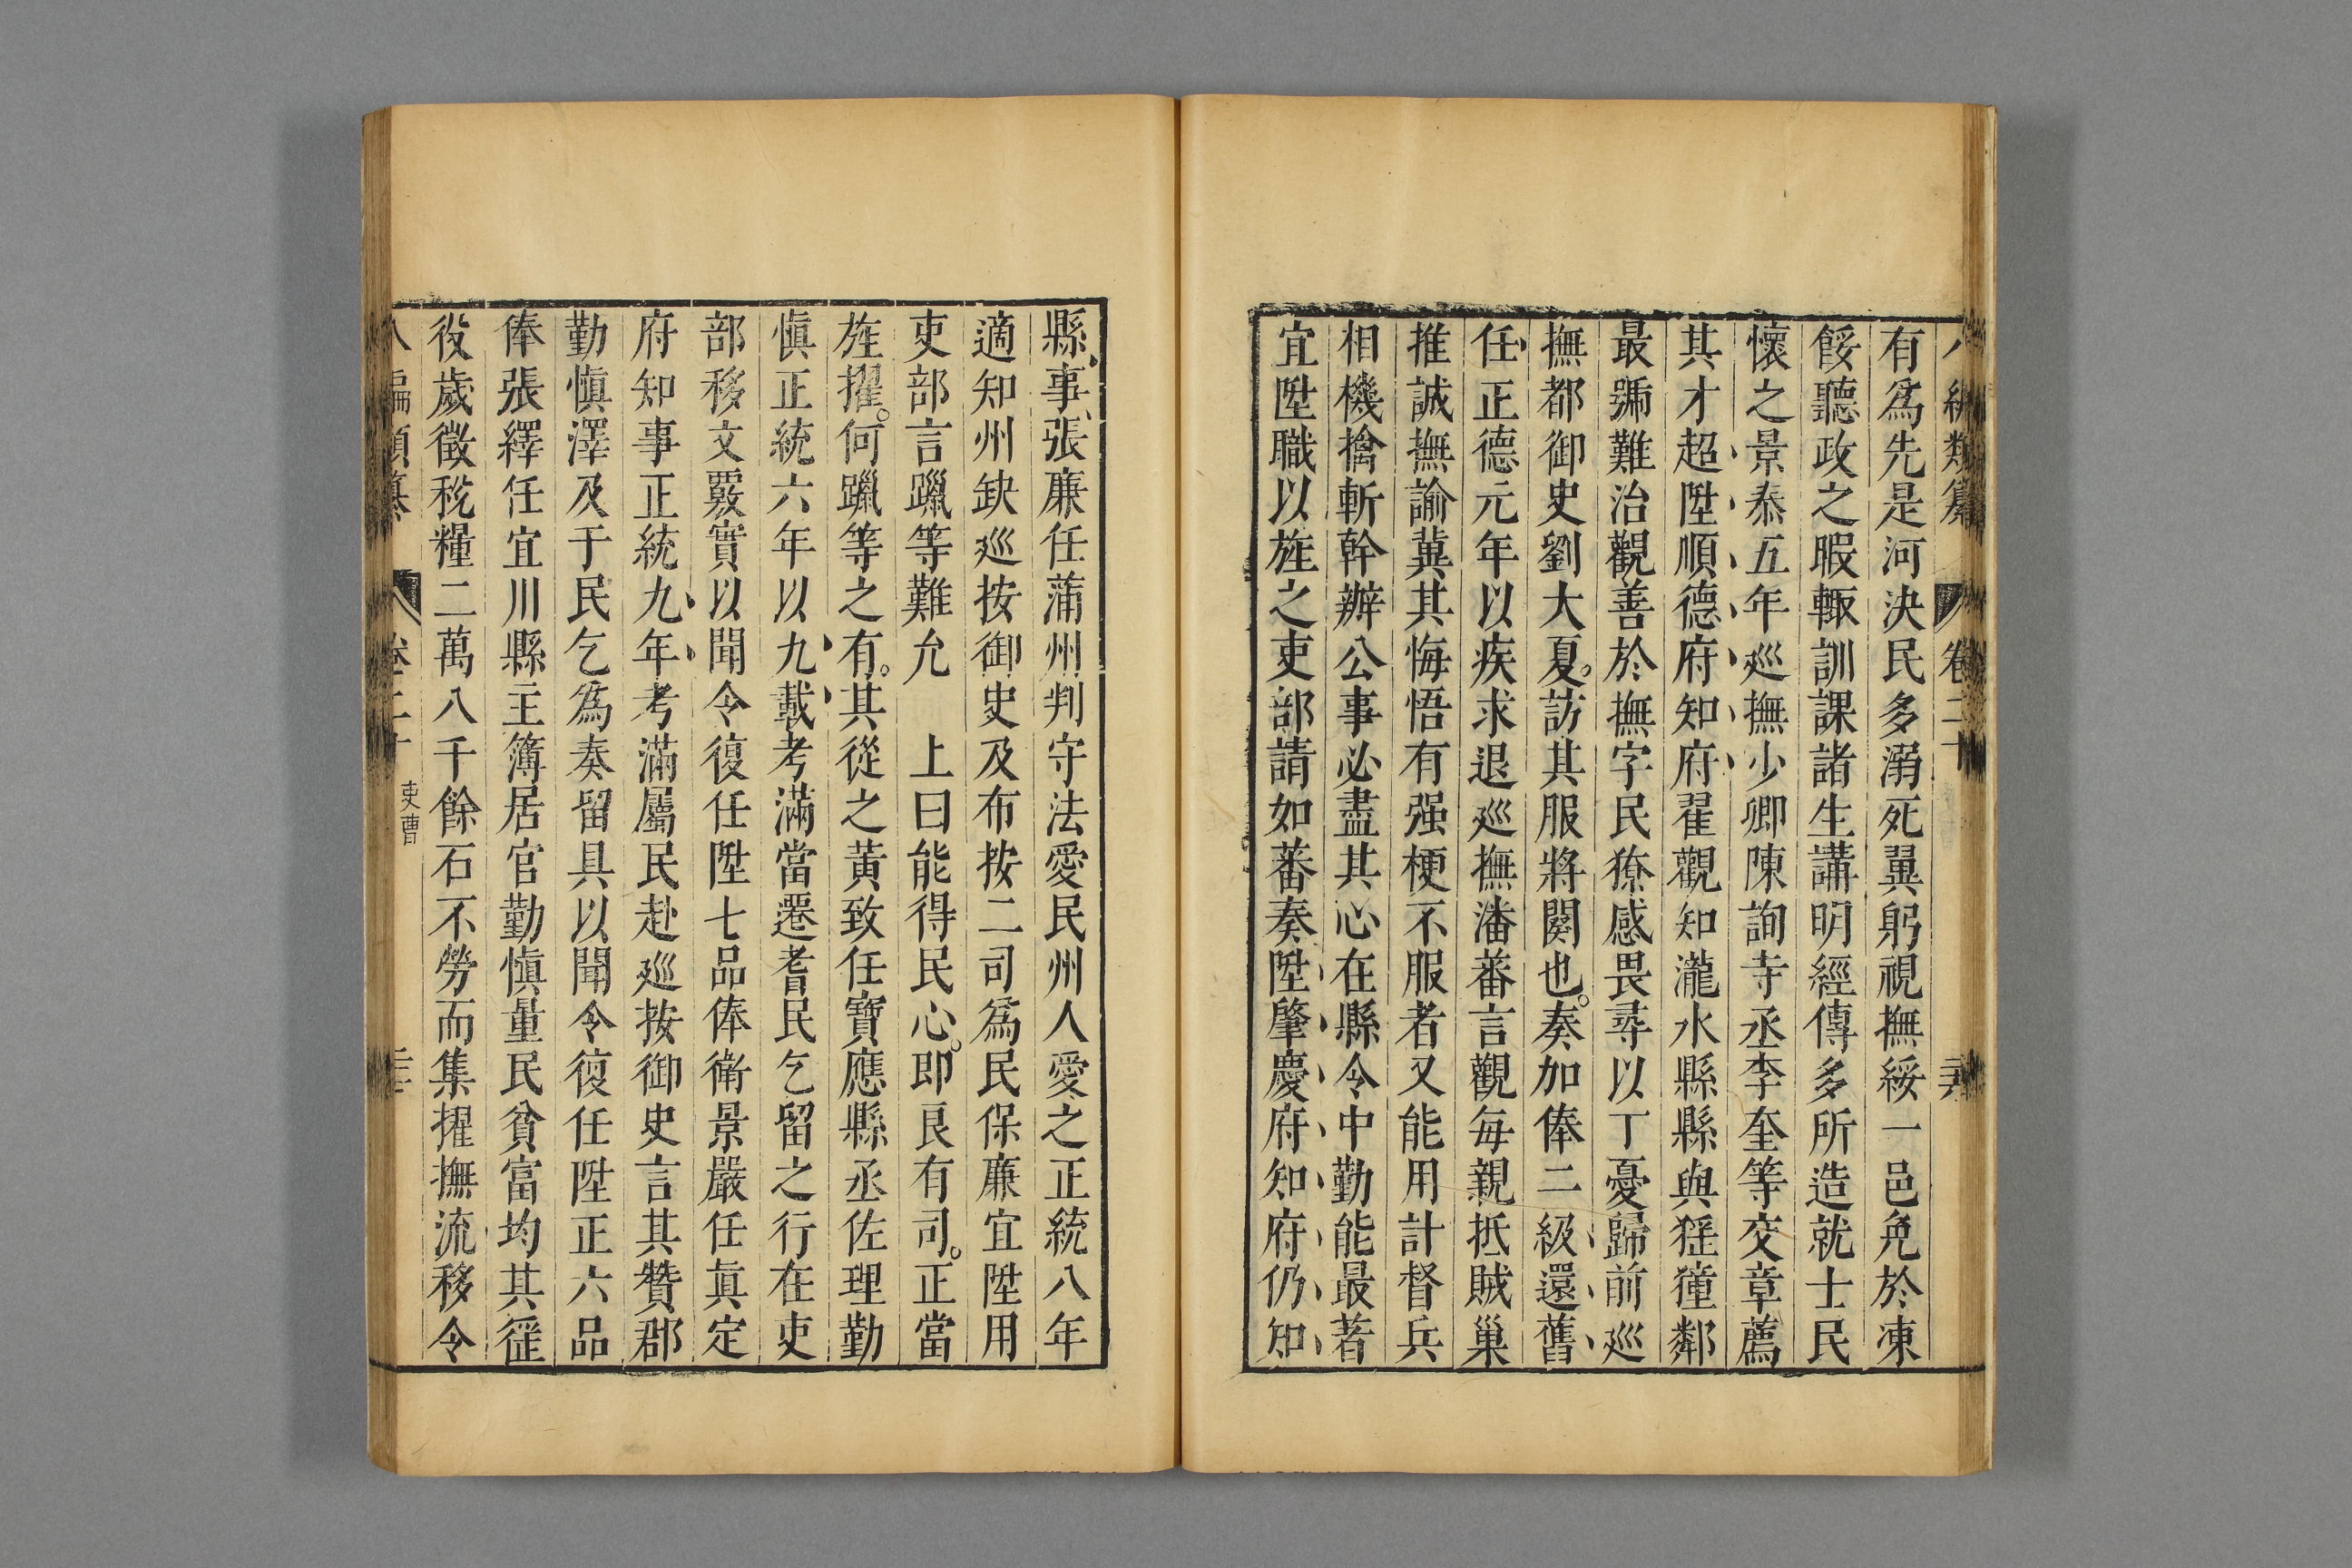 八編類纂 卷二十
有爲先是河決民多溺死巽躬視撫綏一邑免於凍
餒聽政之暇輙訓課諸生講明經傳多所造就士民
懷之景泰五年巡撫少卿陳詢寺丞李奎等交章薦
其才超陞順德府知府翟觀知瀧水縣縣與猺獞鄰
最號難治觀善於撫字民獠感畏尋以丁憂歸前巡
撫都御史劉大夏訪其服將闋也奏加俸二級還舊
任正德元年以疾求退巡撫潘蕃言觀每親抵賊巢
推誠撫諭冀其悔悟有强梗不服者又能用計督兵
相機擒斬幹辦公事必盡其心在縣令中勤能最著
宜陞職以旌之吏部請如蕃奏陞肇慶府知府仍知
縣事張廉任蒲州判守法愛民州人愛之正統八年
適知州缺巡按御史及布按二司爲民保廉宜陞用
吏部言躐等難允 上曰能得民心即良有司正當
旌擢何躐等之有其從之黃致任寶應縣丞佐理勤
慎正統六年以九載考滿當遷耆民乞留之行在吏
部移文覈實以聞令復任陞七品俸衛景嚴任眞定
府知事正統九年考滿屬民赴巡按御史言其贊郡
勤慎澤及于民乞爲奏留具以聞令復任陞正六品
俸張繹任宜川縣主簿居官勤慎量民貧富均其徭
役歲徵稅糧二萬八千餘石不勞而集擢撫流移令
八編類纂 卷二十 吏曹